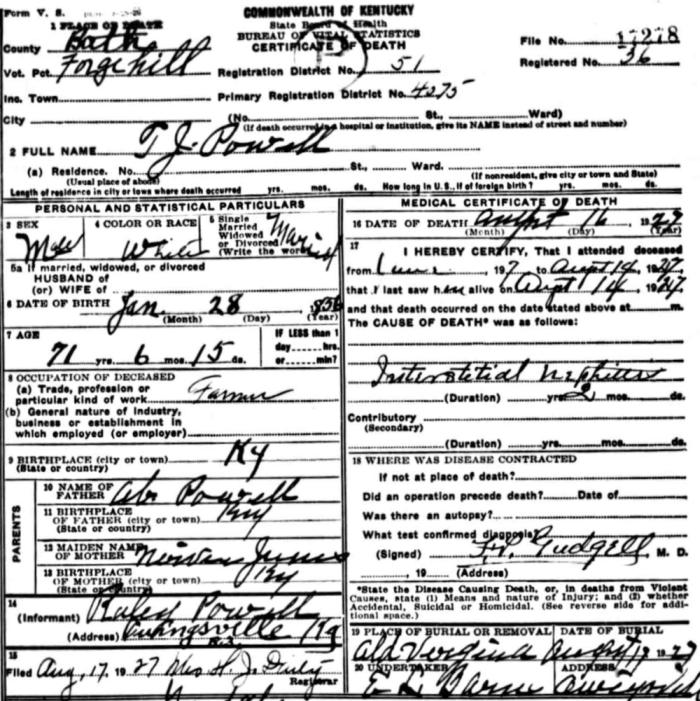 Form V. S.
1 PLACE OF DEATH
County Bath
Vot. Pct. Forgehill
Inc. Town
City
COMMONWEALTH OF KENTUCKY
State Board of Health
BUREAU OF VITAL STATISTICS
CERTIFICATE OF DEATH
File No. 17278
Registered No. 36
Registration District No. 51
Primary Registration District No. 4275
(No. St., Ward)
(If death occurred in a hospital or institution, give its NAME instead of street and number)
2 FULL NAME T J Powell
(a) Residence. No. St., Ward.
(Usual place of abode) (If nonresident, give city or town and State)
Length of residence in city or town where death occurred yrs. mos. ds. How long in U.S., if of foreign birth? yrs. mos. ds.
PERSONAL AND STATISTICAL PARTICULARS
3 SEX
Male
4 COLOR OR RACE
White
5 Single
Married
Widowed
or Divorced
(Write the word)
Married
5a If married, widowed, or divorced
HUSBAND of
(or) WIFE of
6 DATE OF BIRTH Jan. 28
(Month) (Day) (Year)
7 AGE
71 yrs. 6 mos. 15 ds.
IF LESS than 1
day hrs.
or min?
8 OCCUPATION OF DECEASED
(a) Trade, profession or
particular kind of work Farmer
(b) General nature of industry,
business or establishment in
which employed (or employer)
9 BIRTHPLACE (city or town) Ky
(State or country)
PARENTS
10 NAME OF
FATHER Ab Powell
11 BIRTHPLACE
OF FATHER (city or town) Ky
(State or country)
12 MAIDEN NAME
OF MOTHER
13 BIRTHPLACE
OF MOTHER (city or town) Ky
(State or country)
14
(Informant) Powell
(Address) Owingsville Ky
15
Filed Aug, 17, 1927 Mrs H. J. Daily
Registrar
MEDICAL CERTIFICATE OF DEATH
16 DATE OF DEATH August 16 1927
(Month) (Day) (Year)
17
I HEREBY CERTIFY, That I attended deceased
from June 192 to August 14 1927
that I last saw him alive on August 14 1927
and that death occurred on the date stated above at m.
The CAUSE OF DEATH* was as follows:
Interstitial Nephritis
(Duration) yrs. 2 mos. ds.
Contributory
(Secondary)
(Duration) yrs. mos. ds.
18 WHERE WAS DISEASE CONTRACTED
If not at place of death?
Did an operation precede death? Date of
Was there an autopsy?
What test confirmed diagnosis?
(Signed) Gudgell, M. D.
, 19 (Address)
*State the Disease Causing Death, or, in deaths from Violent
Causes, state (1) Means and nature of Injury; and (2) whether
Accidental, Suicidal or Homicidal. (See reverse side for addi-
tional space.)
19 PLACE OF BURIAL OR REMOVAL
DATE OF BURIAL
Old Virginia August 17 1927
20 UNDERTAKER
ADDRESS
E L Barnes